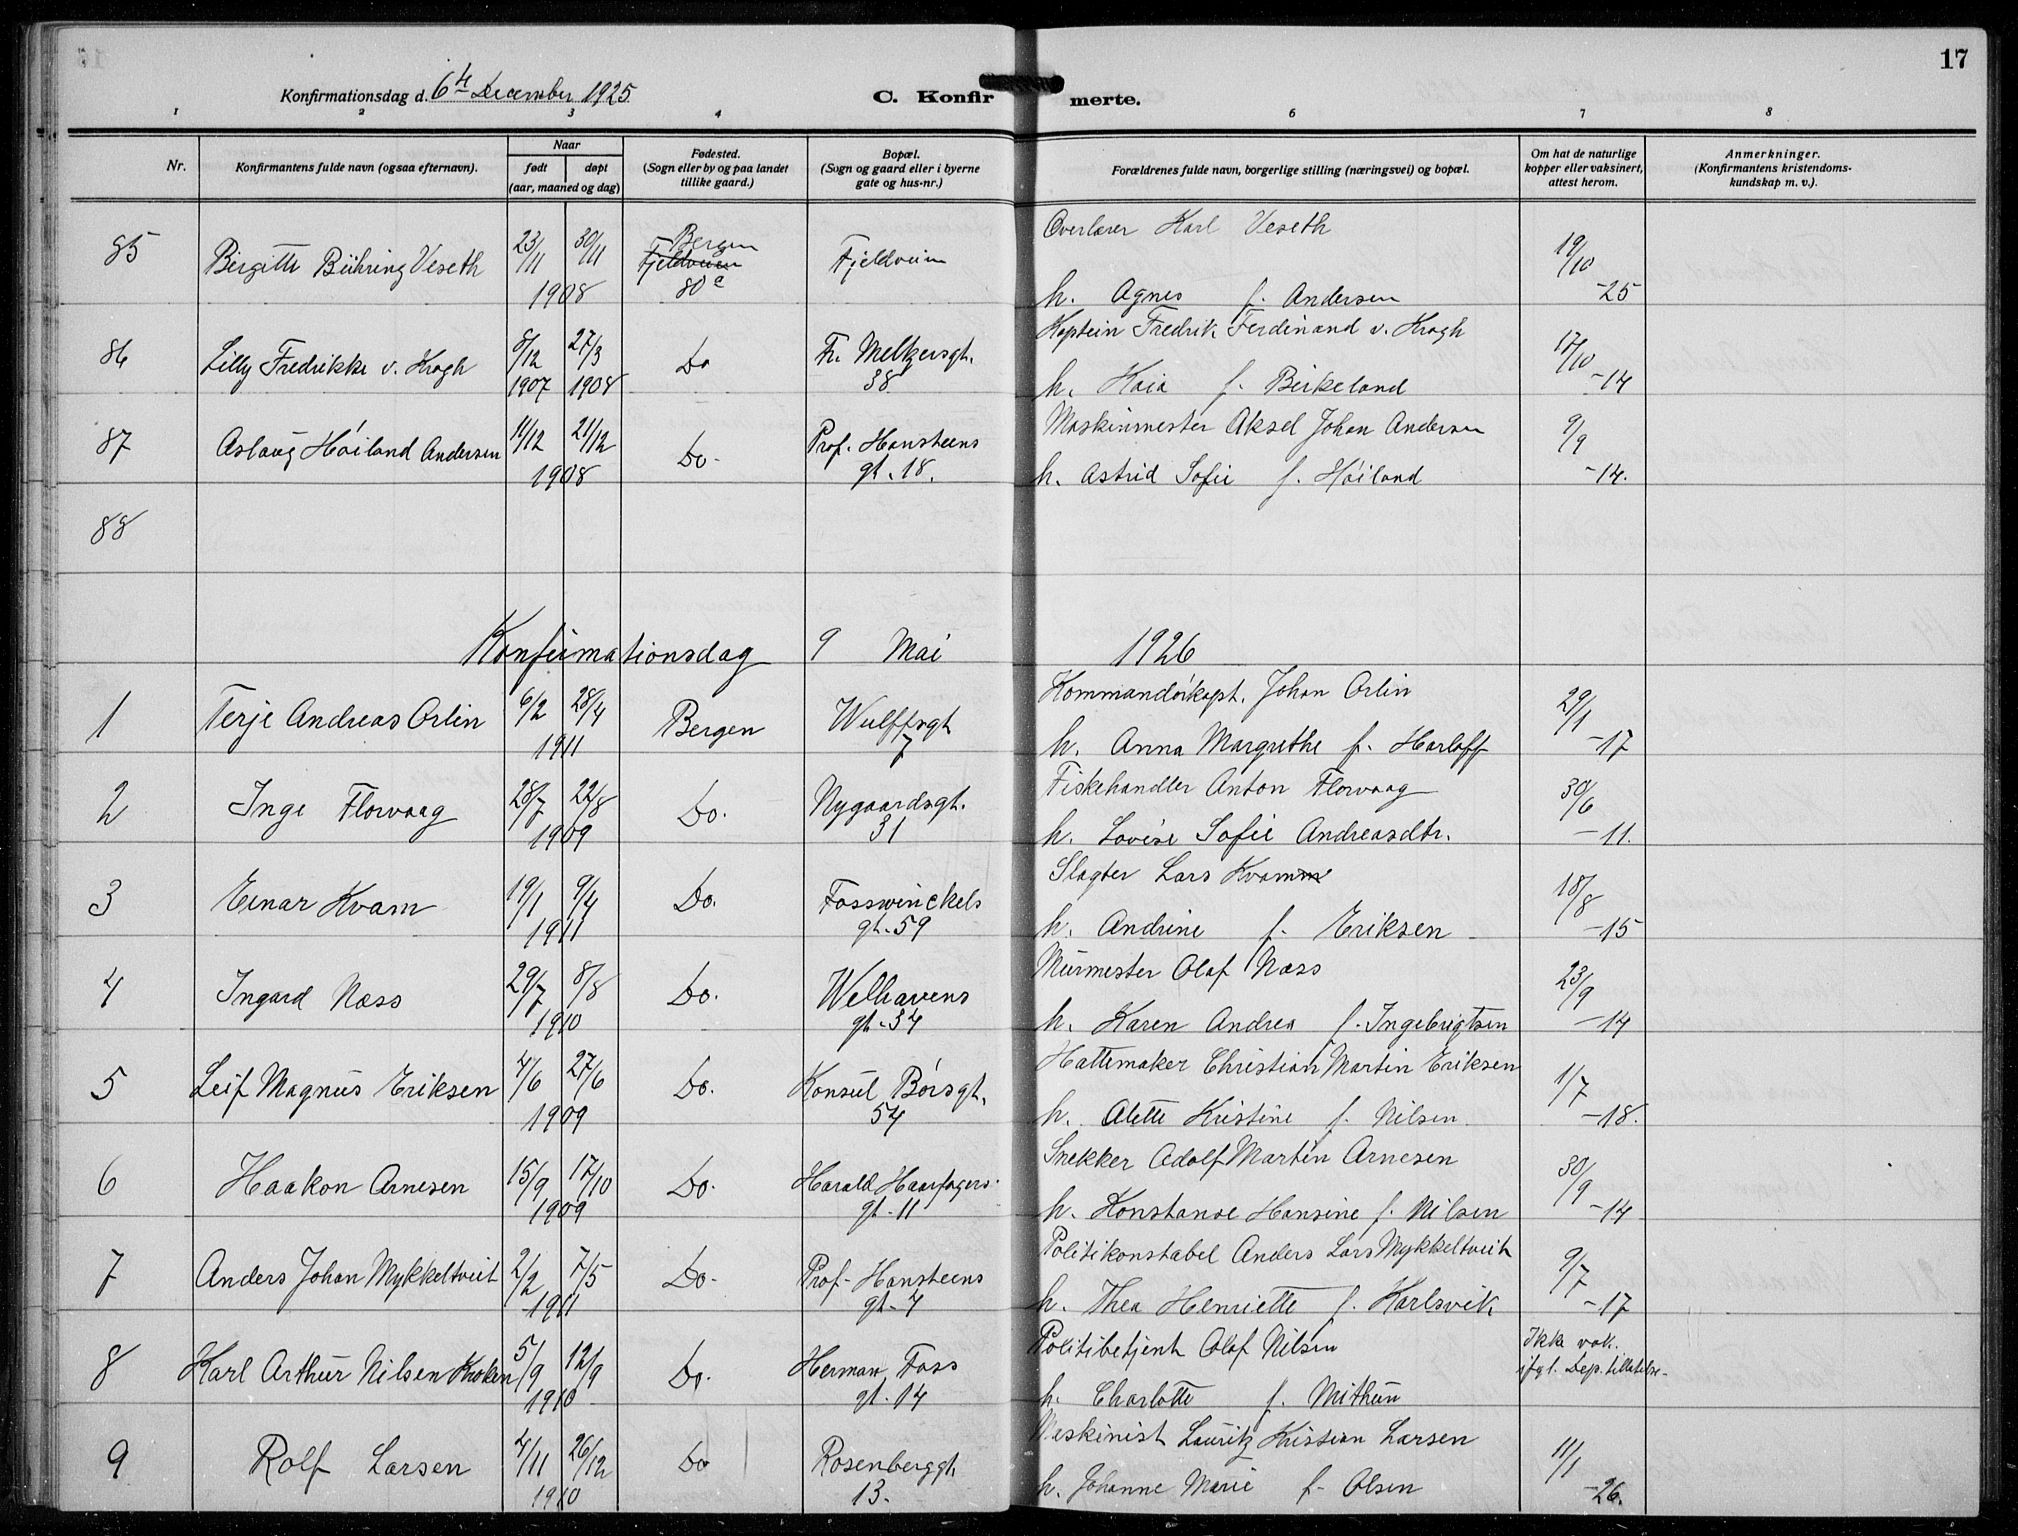 17
Konfirmationsdag d. 6te December 1925.
C. Konfir merte.
1 2 3 4 6 7 8
Nr.
Konfirmantens fulde navn (ogsaa efternavn).
Naar
født døpt
(aar, maaned og dag)
Fødested.
(Sogn eller by og paa landet
tillike gaard.)
Bopæl.
(Sogn og gaard eller i byerne
gate og hus-nr.)
Forældrenes fulde navn, borgerlige stilling (næringsvei) og bopæl.
Om hat de naturlige
kopper eller vaksinert,
attest herom.
Anmerkninger.
(Konfirmantens kristendoms-
kundskap m. v.).
85 Birgitte Bühring Veseth 23/11 30/11 1908 Bergen Fjeldveien 80c Fjeldveien Overlærer Karl Veseth 19/10
h. Agnes f. Andersen -25
86 Lilly Fredrikke v. Krogh 8/12 1907 27/3 1908 Do Fr. Meltzersgt. 38 Kaptein Fredrik Ferdinand v. Krogh 17/10
h. Kaia f. Birkeland -14
87 Aslaug Høiland Andersen 11/12 21/12 1908 Do. Prof. Hansteens gt. 18. Maskinmester Aksel Johan Andersen 9/9
h. Astrid Sofie f. Høiland -14.
88
Konfirmationsdag 9 Mai 1926
1 Terje Andreas Orlin 6/2 28/4 1911 Bergen Wulffsgt 7 Kommandørkapt. Johan Orlin 29/1
h. Anna Margrethe f. Harloff -17
2 Inge Florvaag 28/7 22/8 1909 Do. Nygaardsgt. 31 Fiskehandler Anton Florvaag 30/6
h. Lovise Sofie Andreasdtr. -11.
3 Einar Kvam 19/1 9/4 1911 Do. Fosswinckels gt. 59 Slagter Lars Kvamme 18/8
h. Andrine f. Eriksen -15
4 Ingard Næss 29/7 8/8 1910 Do. Welhavens gt. 34 Murmester Olaf Næss 23/9
h. Karen Andrea f. Ingebrigtsen -14
5 Leif Magnus Eriksen 4/6 27/6 1909 Do. Konsul Børsgt. 54 Hattemaker Christian Martin Eriksen 1/7
h. Alette Kristine f. Nilsen. -18.
6 Haakon Arnesen 15/9 17/10 1909 Do. Harald Haarfagers gt. 11 Snekker Adolf Martin Arnesen 30/9
h. Konstanse Hansine f. Nilsen -14
7 Anders Johan Mykkeltveit 2/2 7/5 1911 Do. Prof. Hansteens gt. 4 Politikonstabel Anders Lars Mykkeltveit 9/7
h. Thea Henriette f. Karlsvik -17
8 Karl Arthur Nilsen Kroken 5/9 12/9 1910 Do. Herman Foss gt. 14 Politibetjent Olaf Nilsen Ikke vak.
h. Charlotte f. Mithun ifgl. Dep. tillatelse-
9 Rolf Larsen 4/11 26/12 1910 Do Rosenberggt. 13. Maskinist Lauritz Kristian Larsen 11/1
h. Johanne Marie f. Olsen -26.